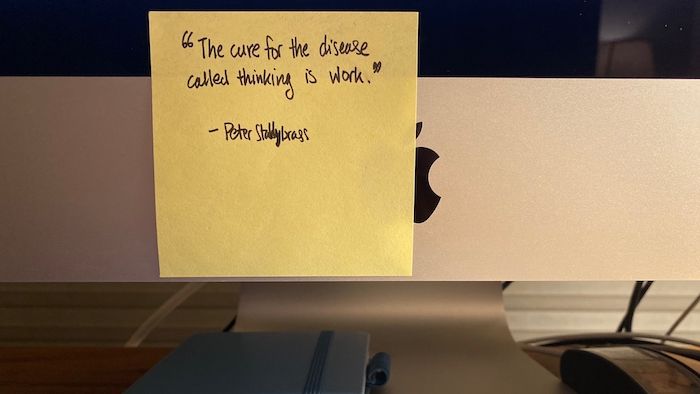 “The cure for the disease
called thinking is work.”
- Peter Stallybrass